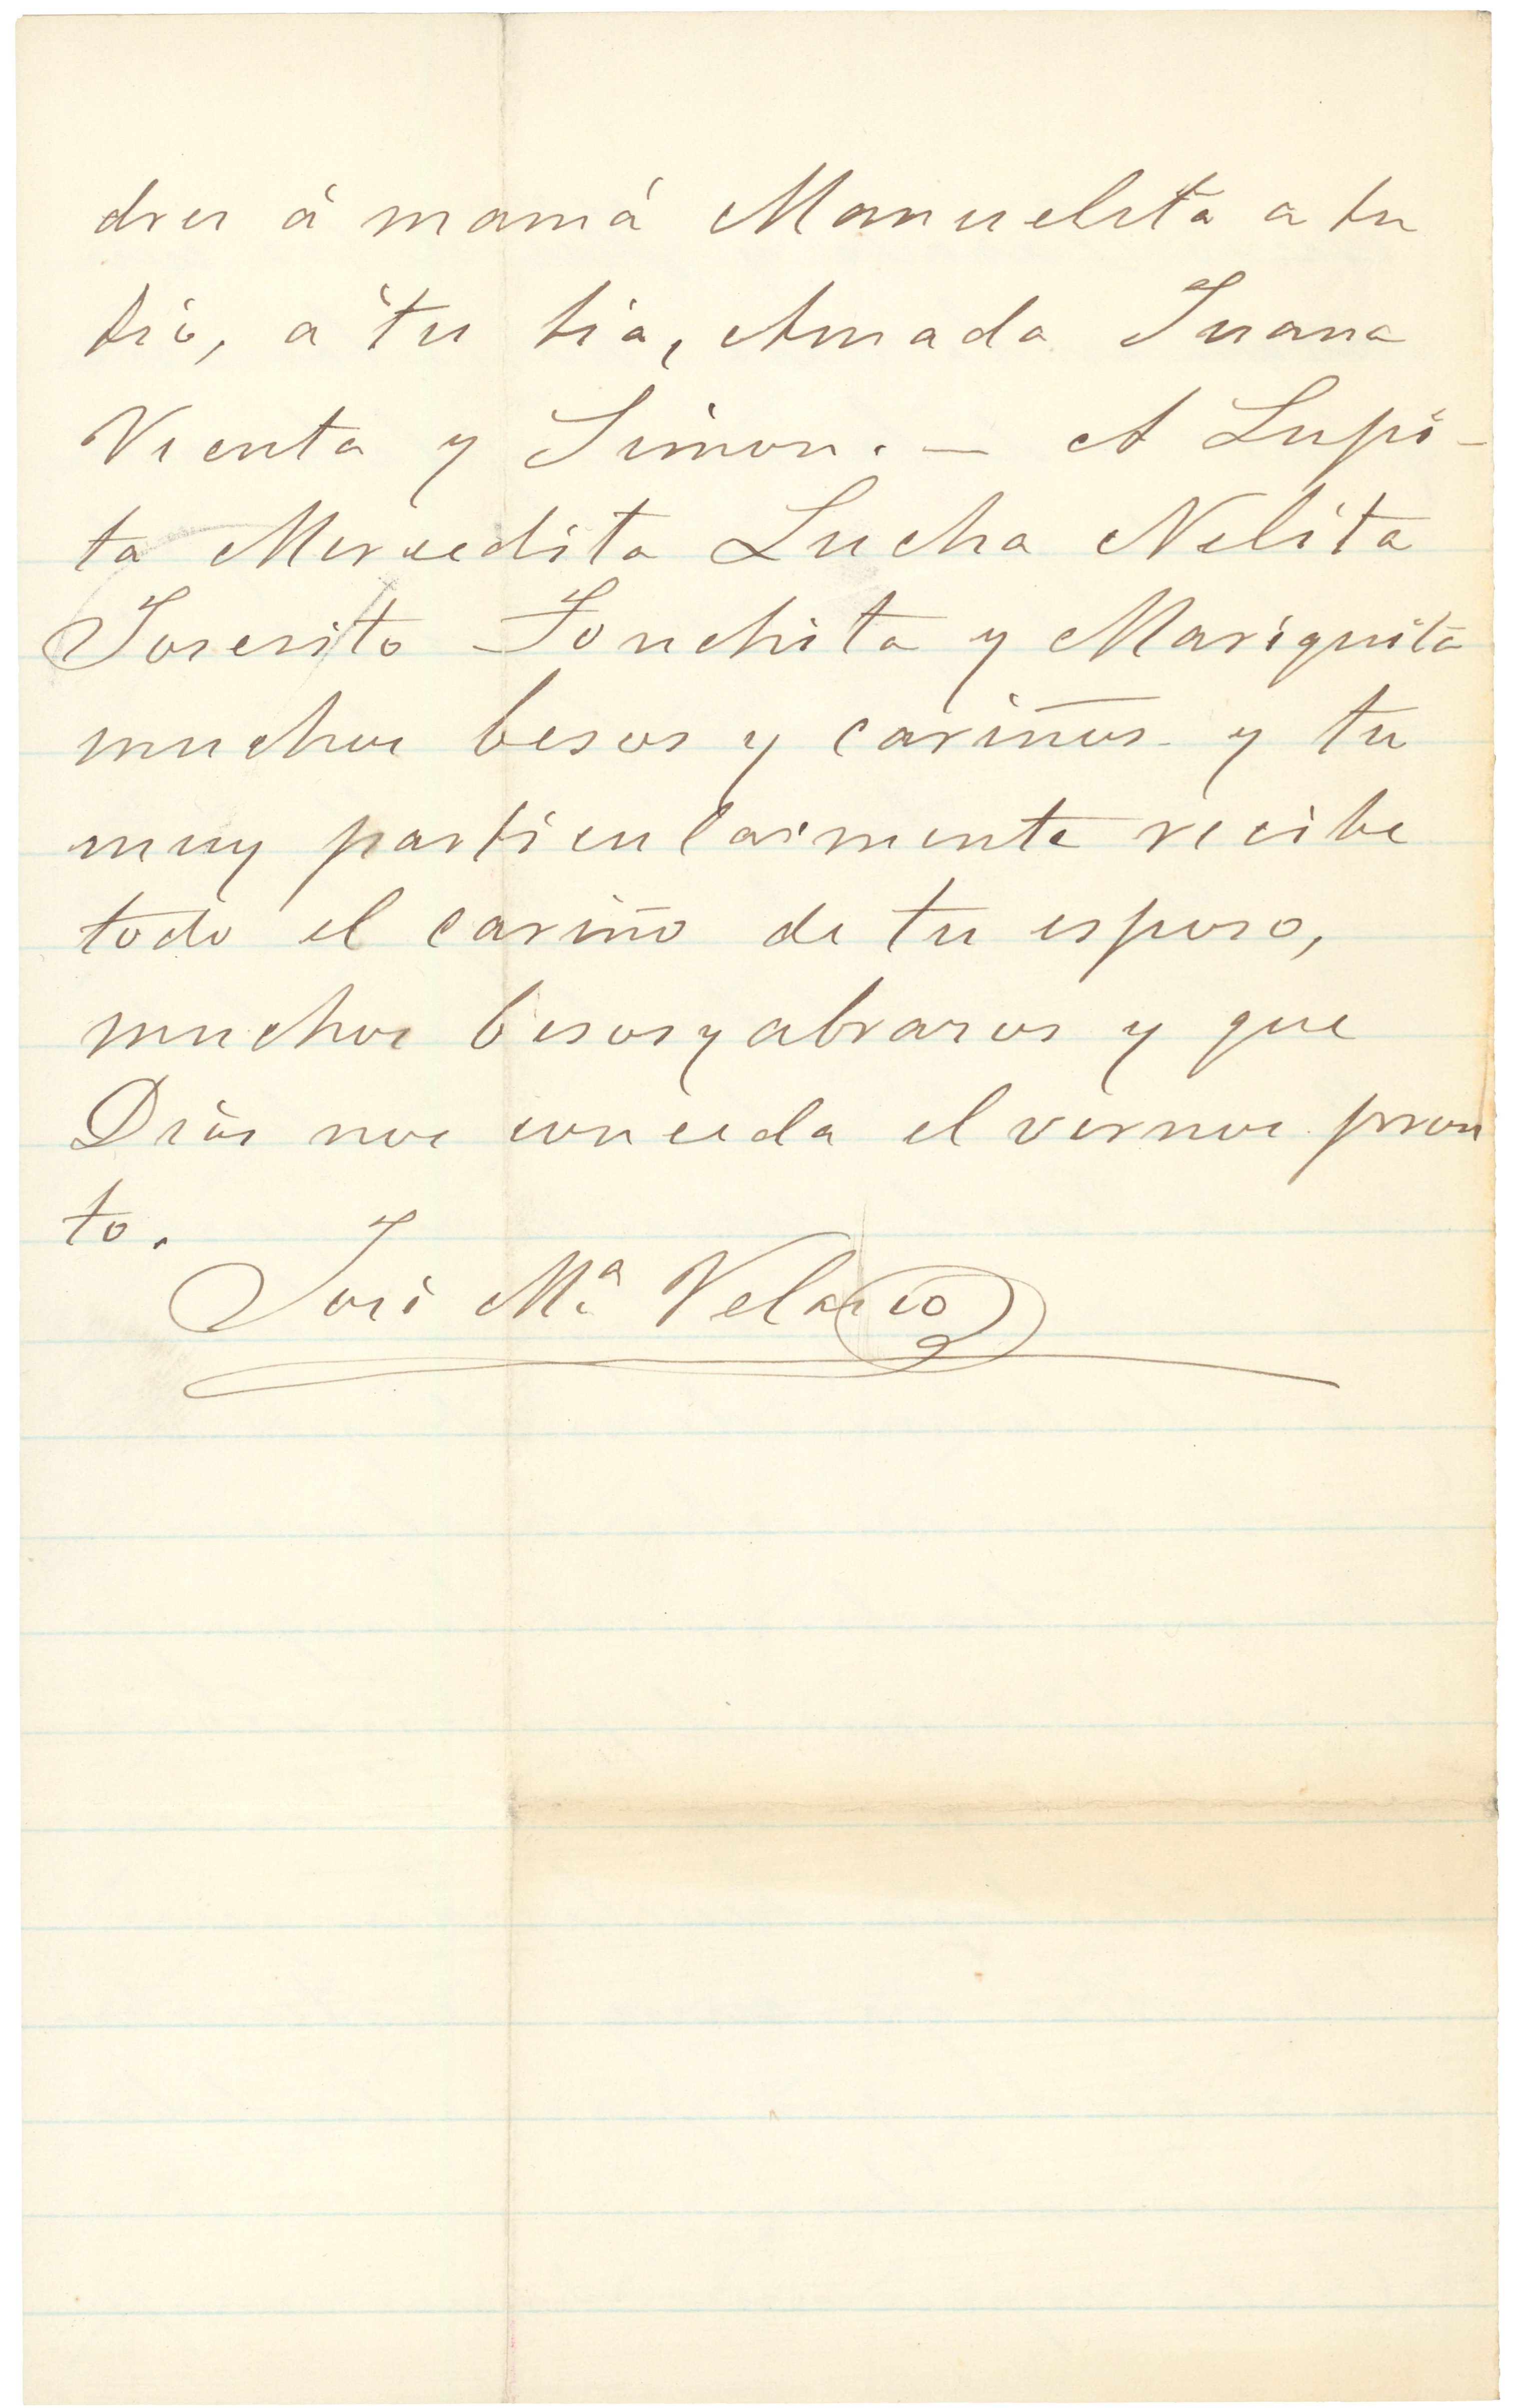 dres á mamá Manuelita a tu
tio, a tu tia, Amada Juana
Vicenta y Simon. — A Lupi-
ta Mercedita Lucha Nelita
Josesito Conchita y Mariquita
muchos besos y cariños y tu
muy particularmente recibe
todo el cariño de tu esposo,
muchos besos y abrazos y que
Dios nos conceda el vernos pron
to.
José Mª Velasco